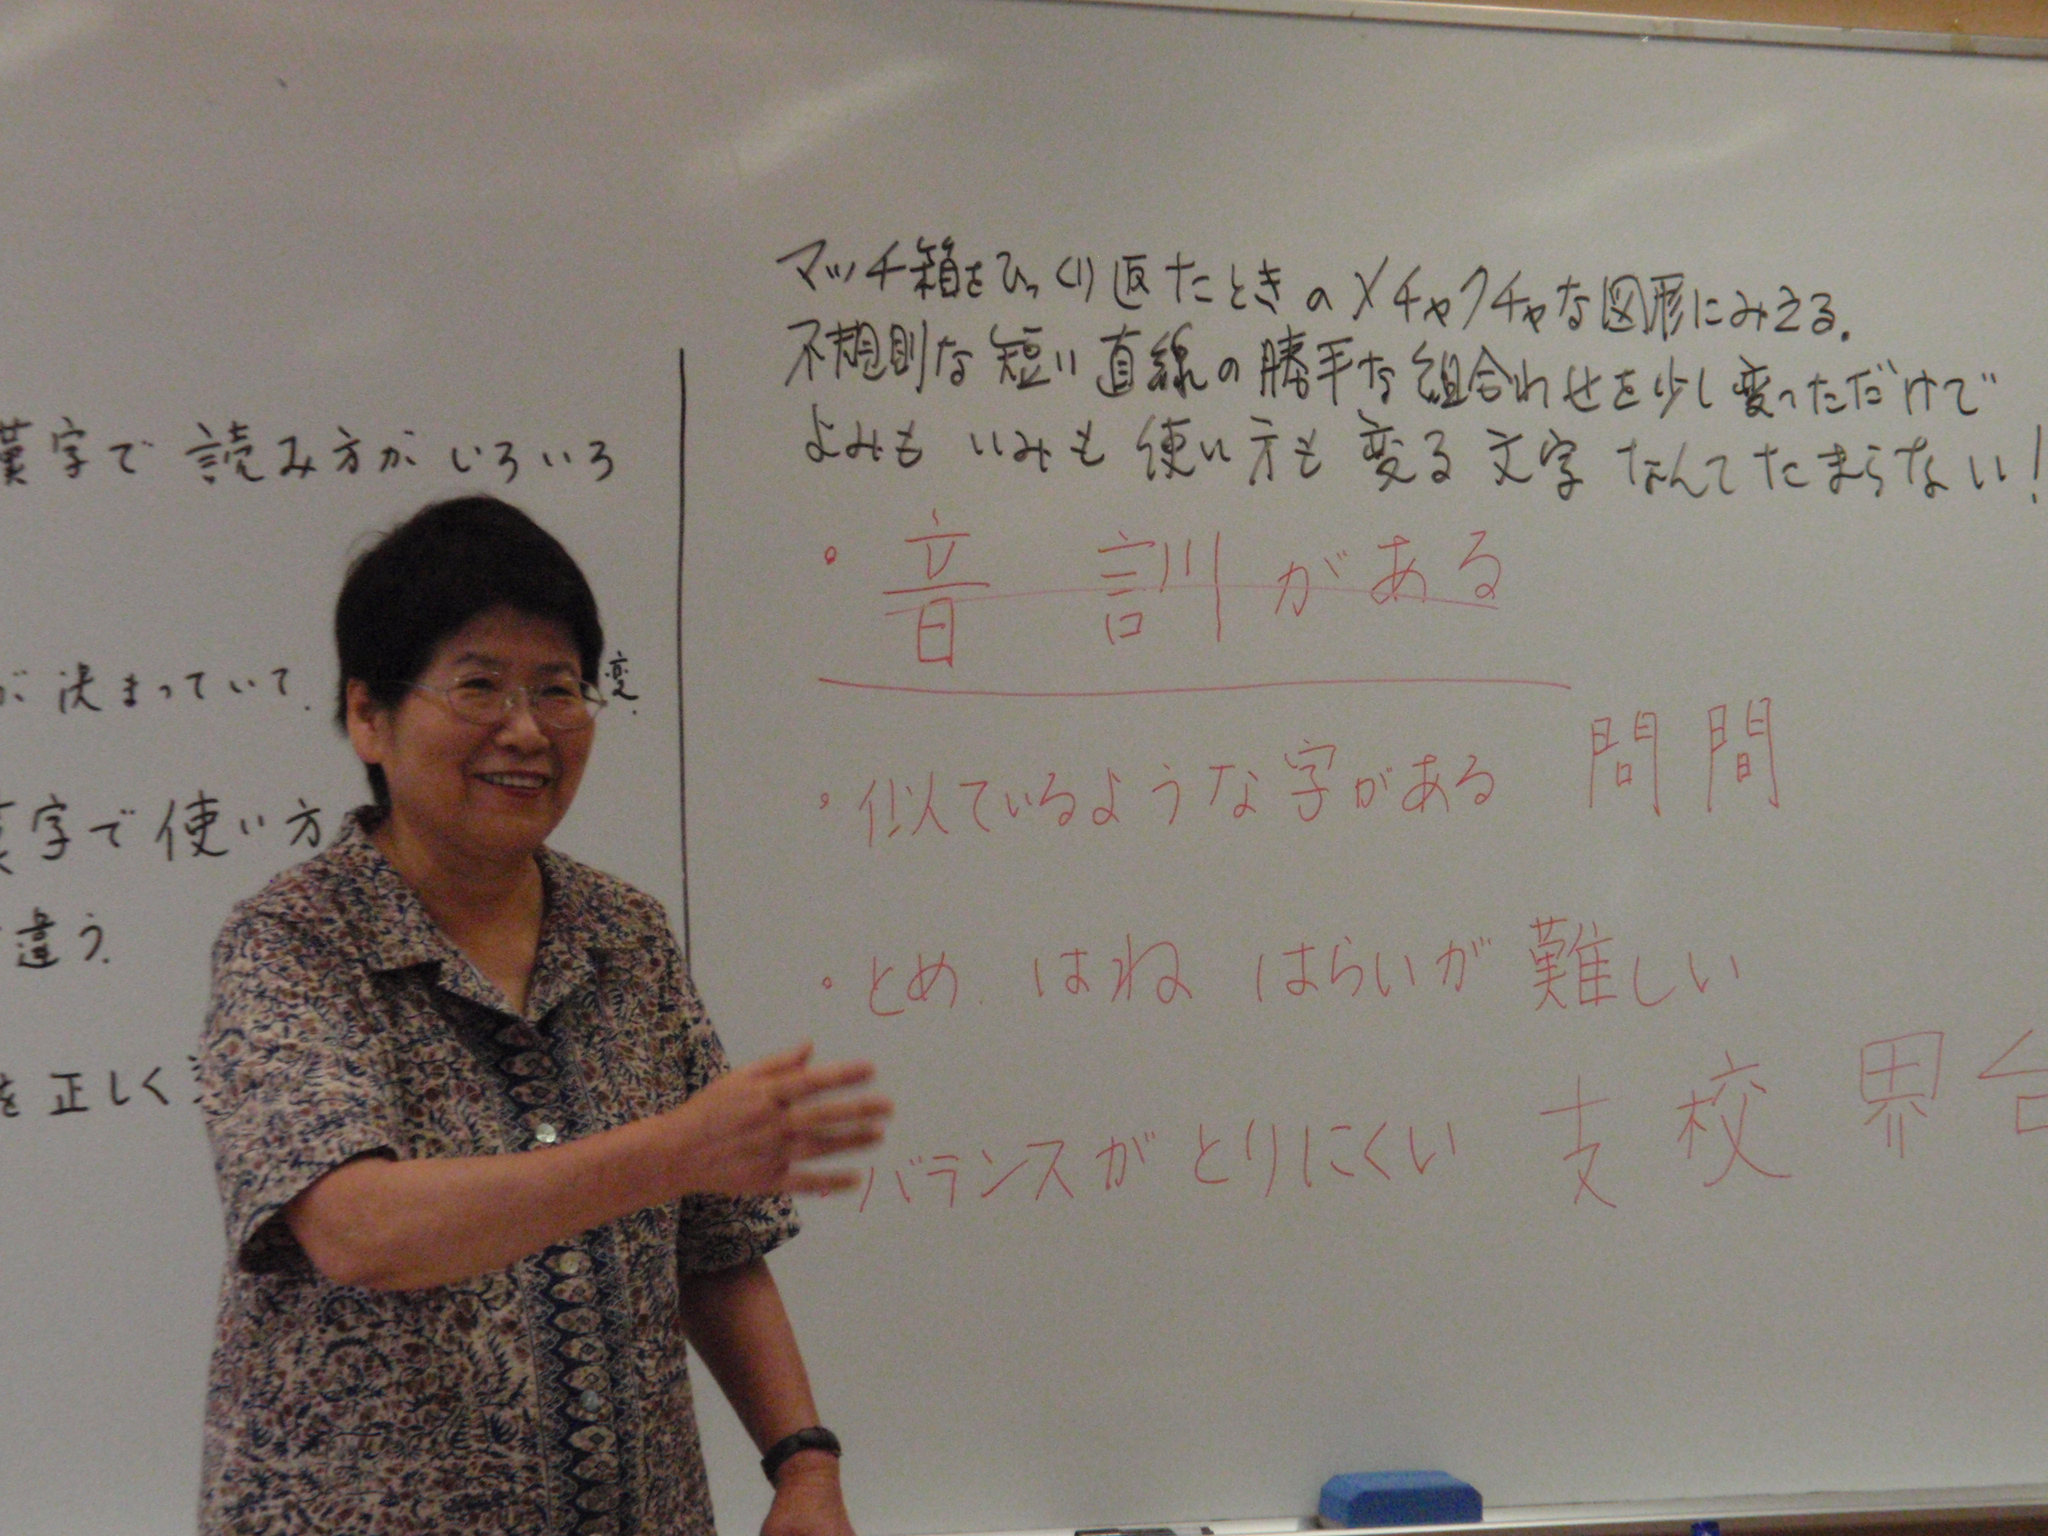 漢字で読み方がいろいろ
が決まっていて. 変.
字で使い方
違う.
を正しく
マッチ箱をひっくり返たときのメチャクチャな図形にみえる.
不規則な短い直線の勝手な組合わせを少し変っただけで
よみも いみも 使い方も 変る 文字 なんてたまらない!
・音 訓がある
・似ているような字がある 問 間
・とめ. はね はらいが難しい
・バランスがとりにくい 支 校 界 台